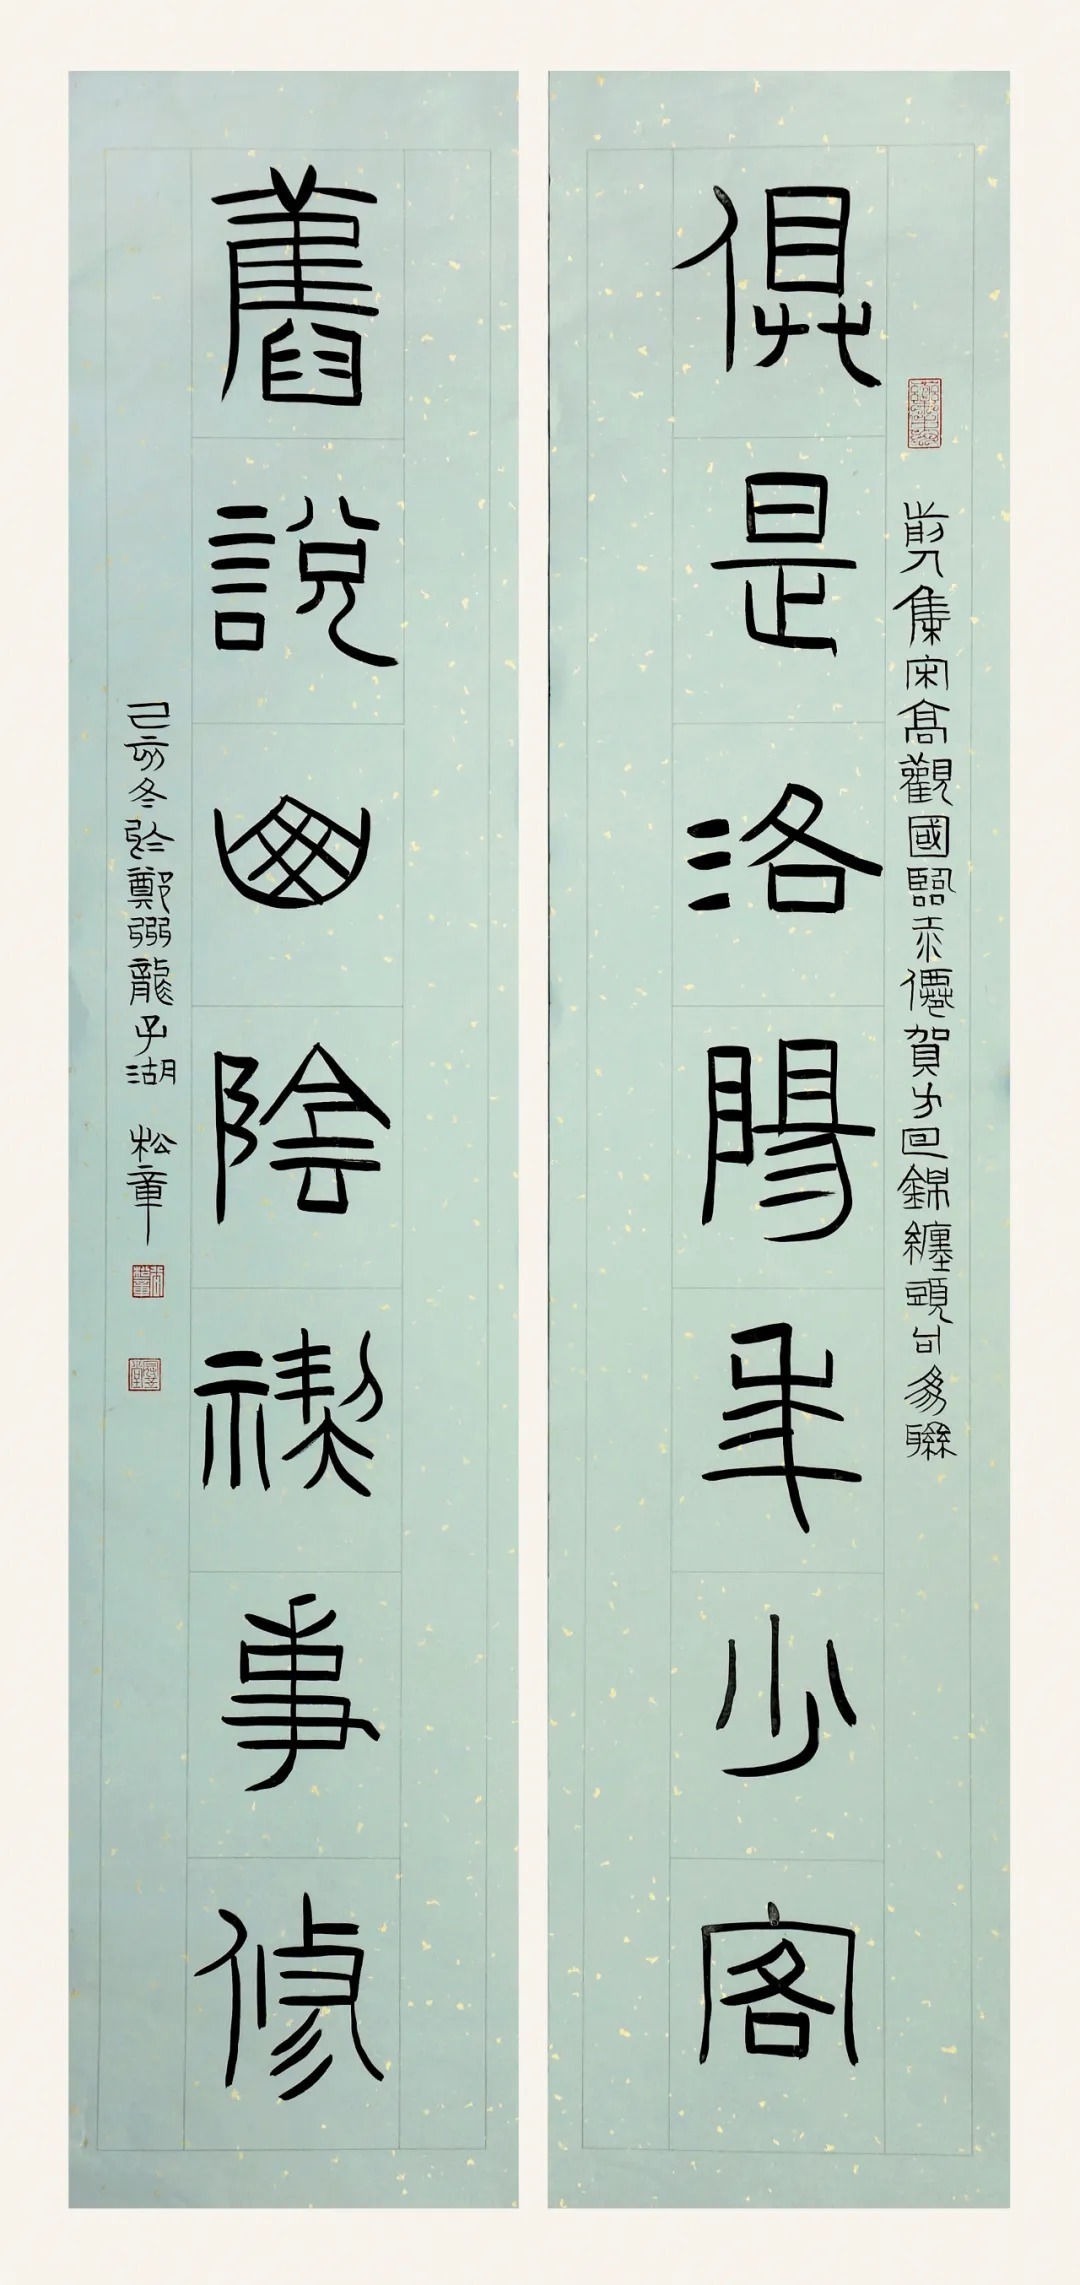 俱是洛陽年少客
剪集宋高觀國臨江僊賀方回錦纏頭句為聯
舊說山陰禊事修
己亥冬於鄭龍子湖 松章